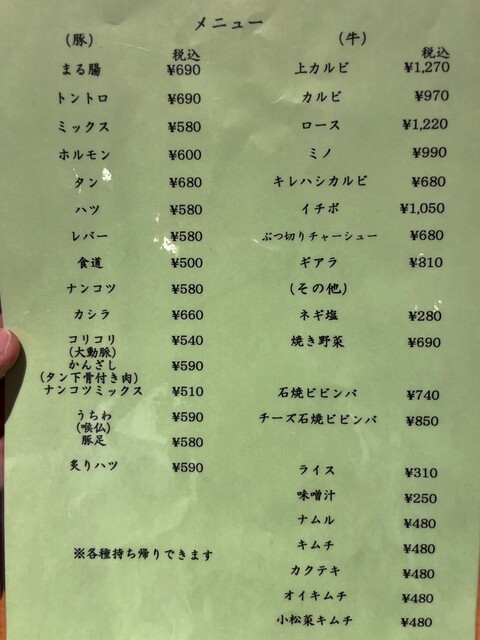 メニュー
(豚)
税込
まる腸 ¥690
トントロ ¥690
ミックス ¥580
ホルモン ¥600
タン ¥680
ハツ ¥580
レバー ¥580
食道 ¥500
ナンコツ ¥580
カシラ ¥660
コリコリ ¥540
(大動脈)
かんざし ¥590
(タン下骨付き肉)
ナンコツミックス ¥510
うちわ ¥590
(喉仏)
豚足 ¥580
炙りハツ ¥590
※各種持ち帰りできます
(牛)
税込
上カルビ ¥1,270
カルビ ¥970
ロース ¥1,220
ミノ ¥990
キレハシカルビ ¥680
イチボ ¥1,050
ぶつ切りチャーシュー ¥680
ギアラ ¥310
(その他)
ネギ塩 ¥280
焼き野菜 ¥690
石焼ビビンバ ¥740
チーズ石焼ビビンバ ¥850
ライス ¥310
味噌汁 ¥250
ナムル ¥480
キムチ ¥480
カクテキ ¥480
オイキムチ ¥480
小松菜キムチ ¥480